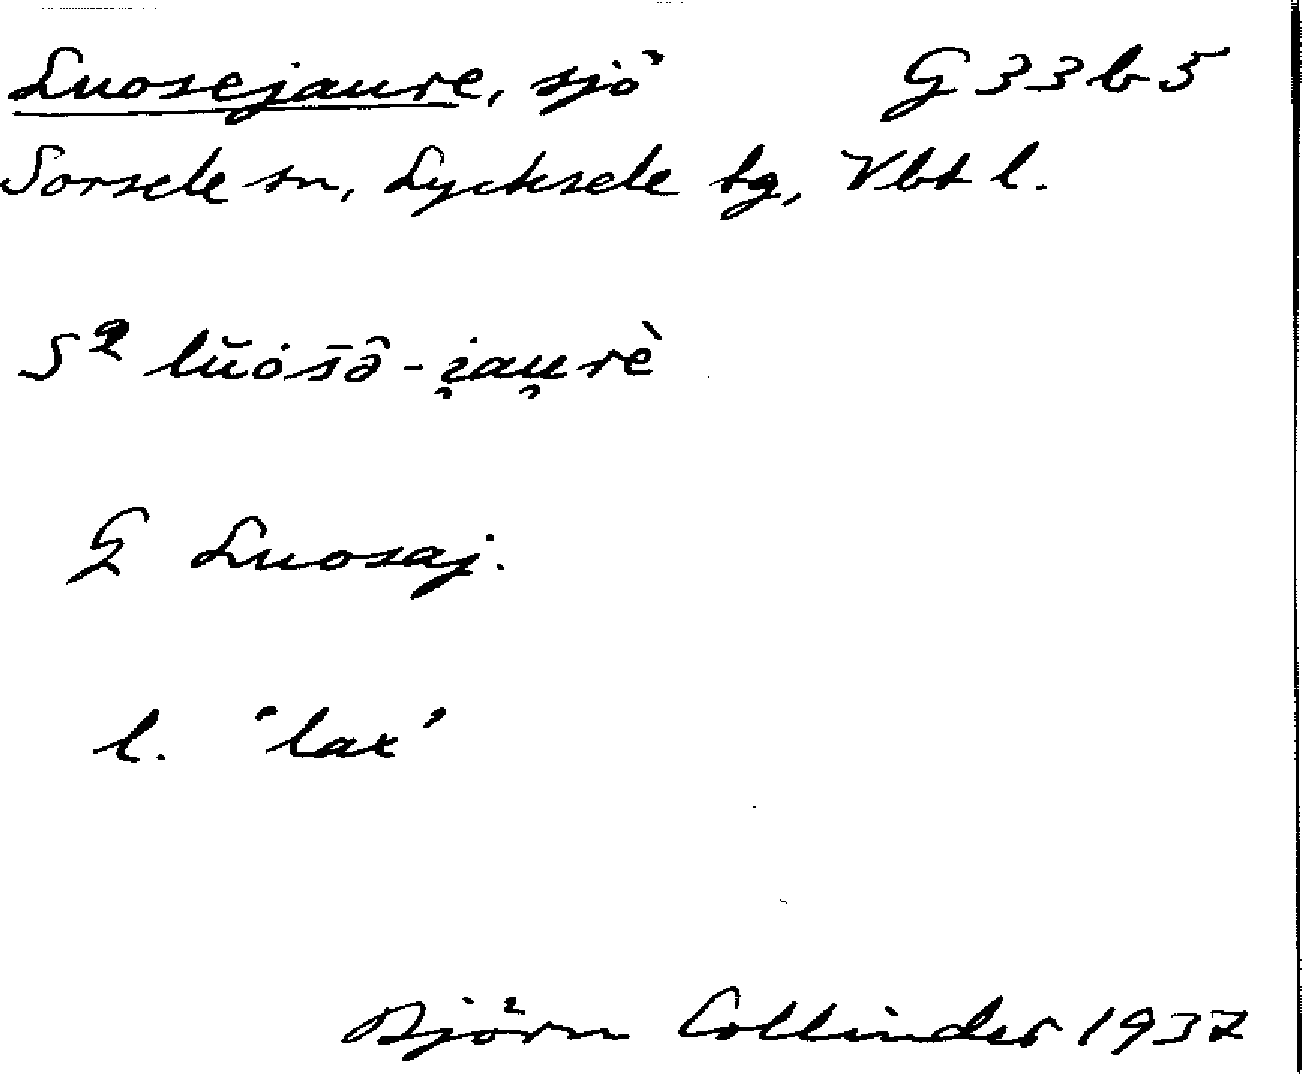 Luosejaure, sjö G 33 b 5
Sorsele sn, Lycksele tg, Vbt l.
S 2 lŭȯs̄ə̂-i̯au̯rè
G Luosaj.
l. 'lax'
Björn Collinder 1937